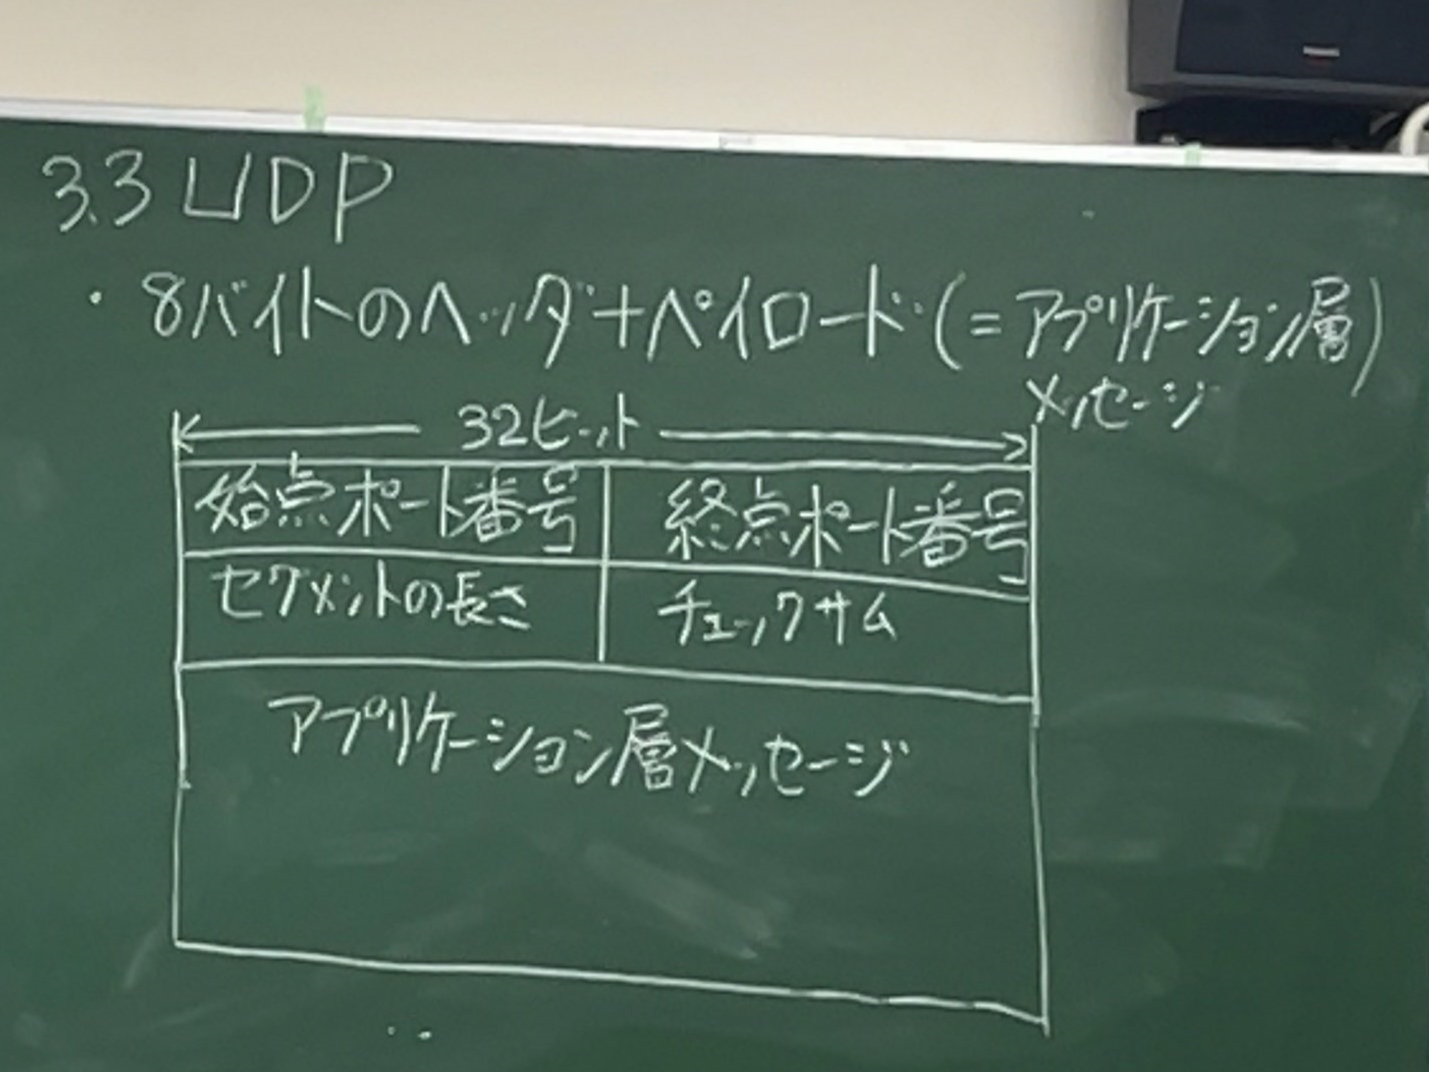 3.3 UDP
・8バイトのヘッダ+ペイロード(=アプリケーション層)
メッセージ
32ビット
始点ポート番号 終点ポート番号
セグメントの長さ チェックサム
アプリケーション層メッセージ